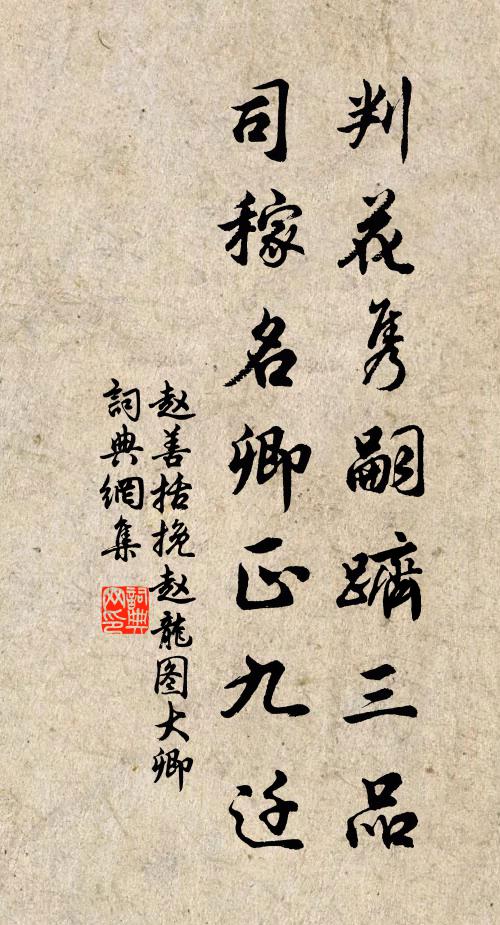 判花隽嗣跻三品
司稼名卿正九迁
赵善括挽赵龍图大卿
詞典網集
詞典网印